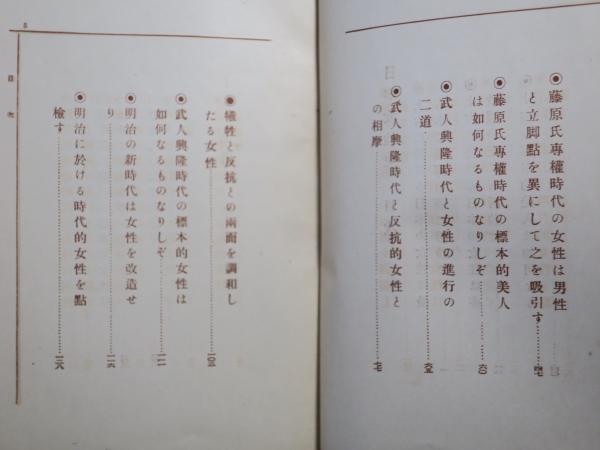 ◉藤原氏專權時代の女性は男性
と立脚點を異にして之を吸引す…
◉藤原氏專權時代の標本的美人
は如何なるものなりしぞ…六〇
◉武人興隆時代と女性の進行の
二道…六五
◉武人興隆時代と反抗的女性と
の相摩…七七
5
目次
◉犧牲と反抗との兩面を調和し
たる女性…一〇五
◉武人興隆時代の標本的女性は
如何なるものなりしぞ…一一一
◉明治の新時代は女性を改造せ
り…一二六
◉明治に於ける時代的女性を點
檢す…一三六